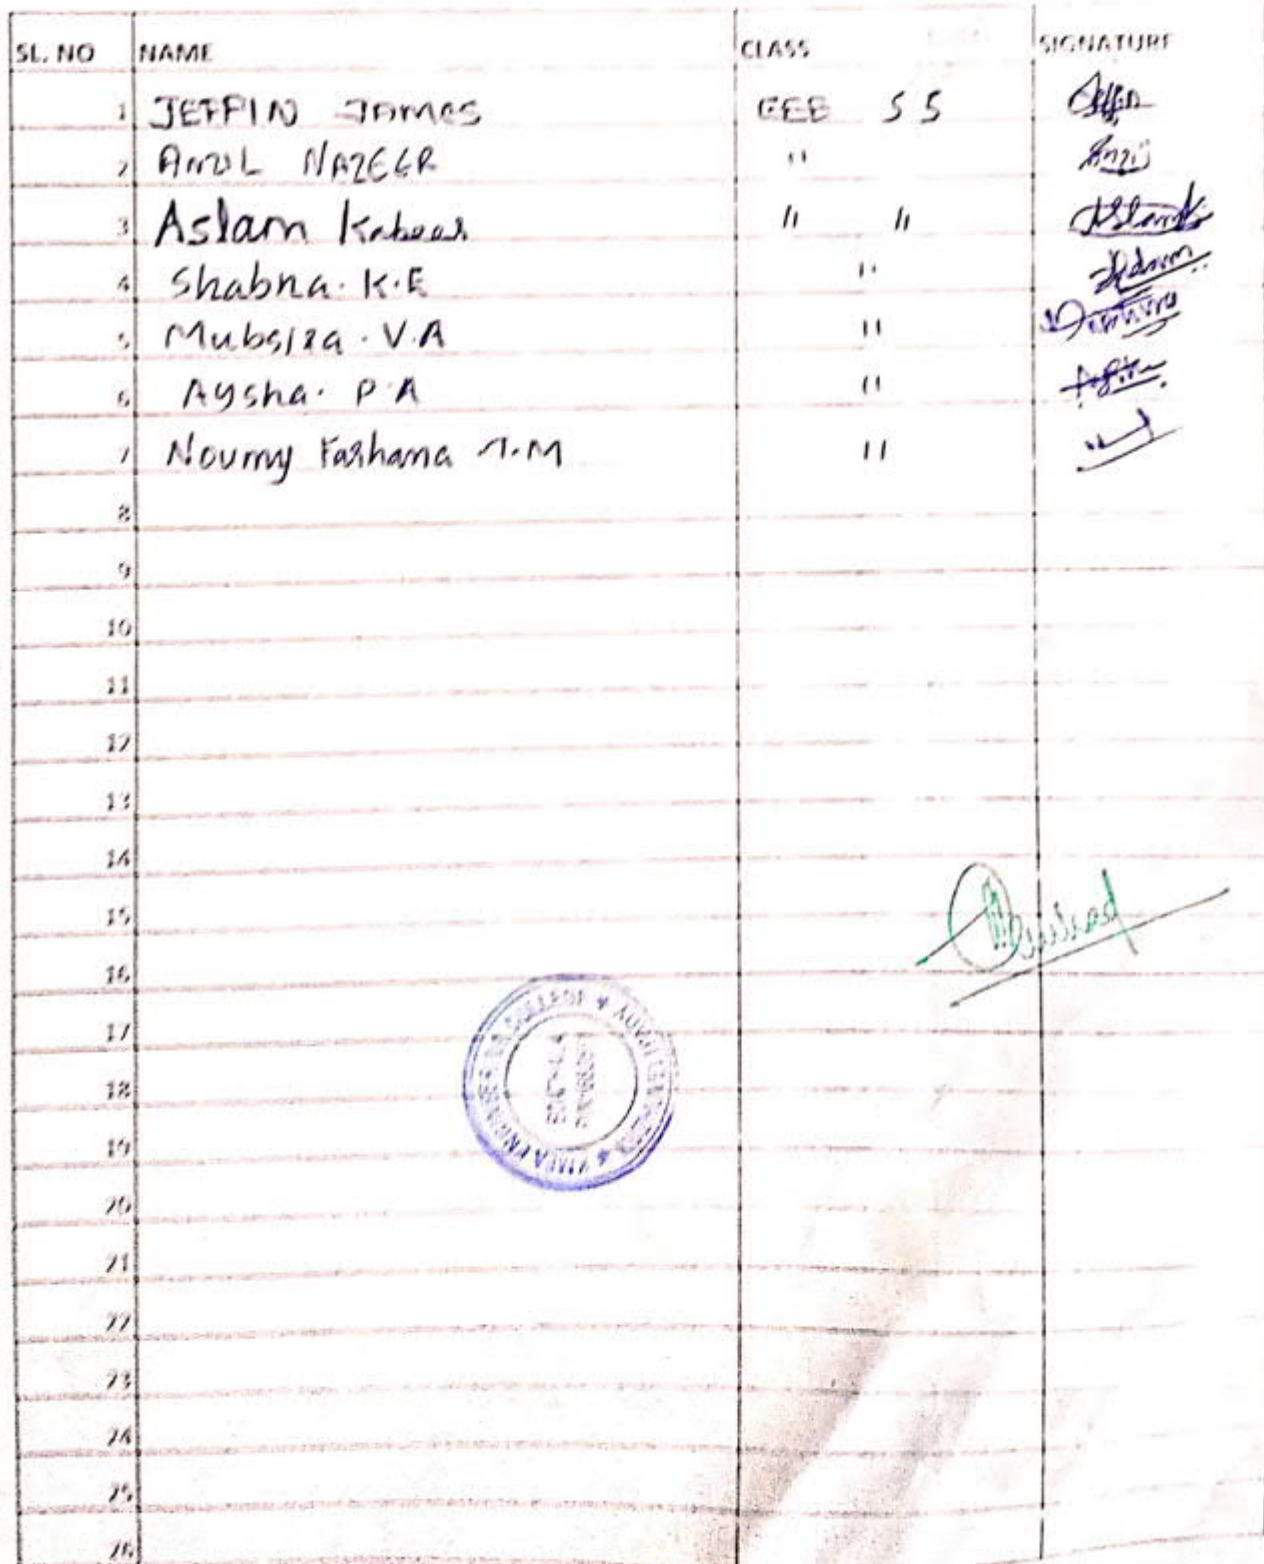 SL. NO NAME CLASS SIGNATURE
1 JEFFIN JAMES EEE S5
2 ANZIL NAZEER "
3 Aslam Kabeer " "
4 Shabna. K.E "
5 Mubsira. V.A "
6 Aysha. P.A "
7 Noumy Farhana T.M "
8
9
10
11
12
13
14
15
16
17
18
19
20
21
22
23
24
25
26